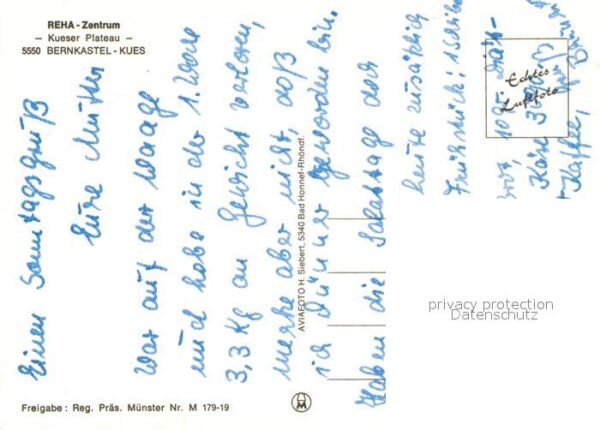 REHA - Zentrum
— Kueser Plateau —
5550 BERNKASTEL - KUES
Einen Sonntagsgruß
Eure Mutter
War auf der Waage
und habe in der 1. Woche
3,3 Kg an Gewicht verloren,
merke aber nicht, daß
ich dünner geworden bin.
Haben die Salattage doch
heute zusätzlich
Frühstück: 1 Scheibe
Brot, 10 gr. Diät-
Käse 30
Kaffee,
Echtes
Luftfoto
AVIAFOTO H. Siebert, 5340 Bad Honnef-Rhöndf.
privacy protection
Datenschutz
Freigabe : Reg. Präs. Münster Nr. M 179-19